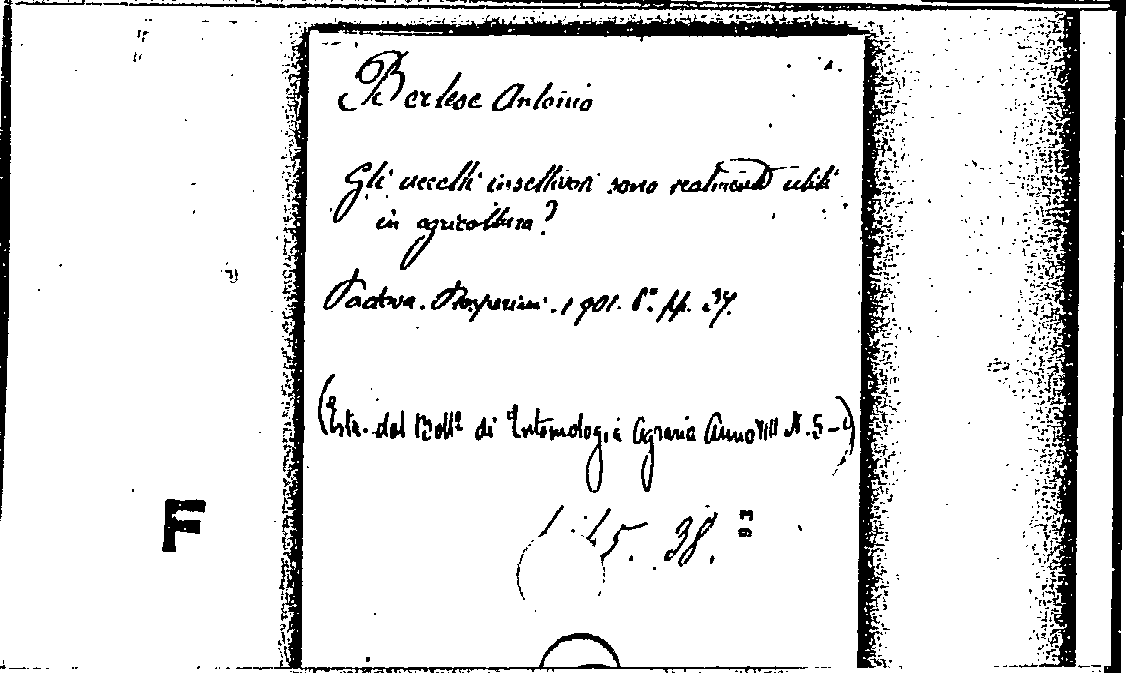 Berlese Antonio
Gli uccelli insettivori sono realmente utili
in agricoltura?
Padova. Prosperini. 1901. 8°. pp. 37.
(Estr. dal Boll° di Entomologia Agraria Anno VIII N. 5-)
5. 38.
93
F